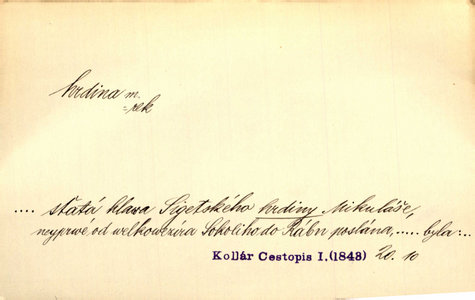 hrdina m.
=rek
.... sťatá hlawa Sigetského hrdiny Mikuláše,
neyprwé od welkowezíra Sokoliho do Rábu poslána, ..... byla...
Kollár Cestopis I.(1843) 20. 10